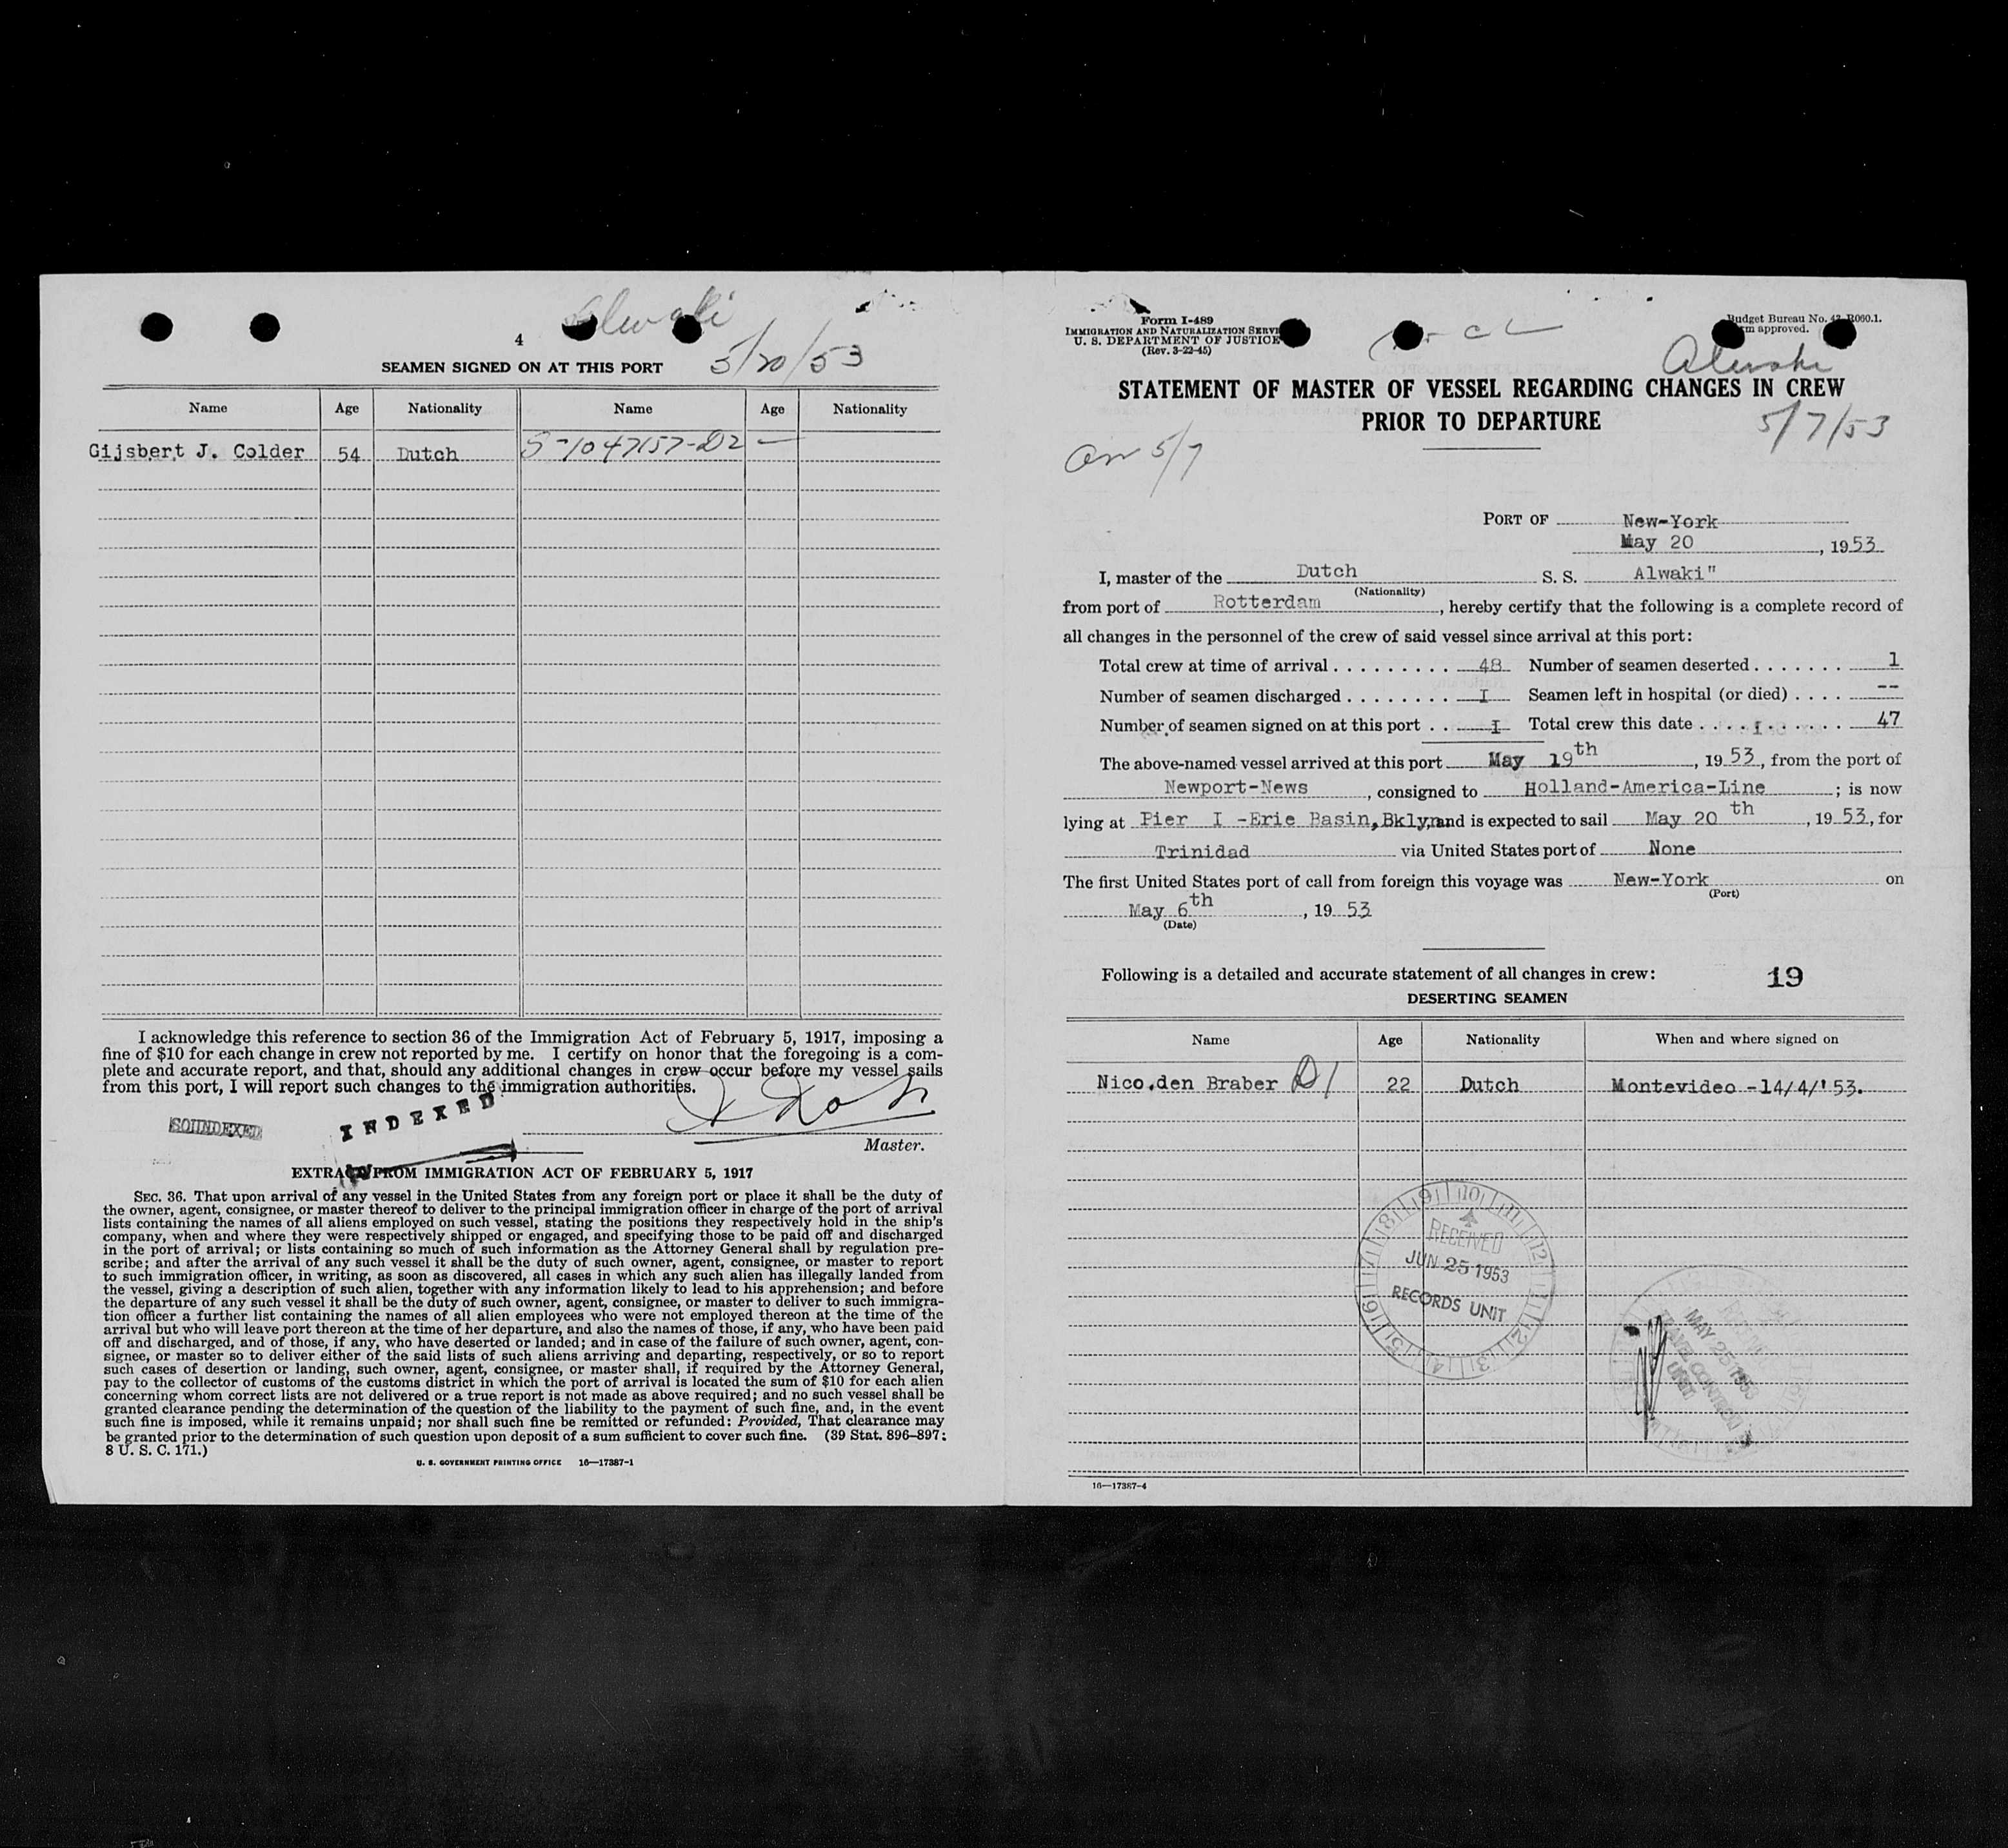 Alwaki
4
SEAMEN SIGNED ON AT THIS PORT
5/20/53
Name Age Nationality Name Age Nationality
Gijsbert J. Colder 54 Dutch S-1047157-D2 —
I acknowledge this reference to section 36 of the Immigration Act of February 5, 1917, imposing a
fine of $10 for each change in crew not reported by me. I certify on honor that the foregoing is a com-
plete and accurate report, and that, should any additional changes in crew occur before my vessel sails
from this port, I will report such changes to the immigration authorities.
SOUNDEXED
INDEXED
Master.
EXTRACT FROM IMMIGRATION ACT OF FEBRUARY 5, 1917
SEC. 36. That upon arrival of any vessel in the United States from any foreign port or place it shall be the duty of
the owner, agent, consignee, or master thereof to deliver to the principal immigration officer in charge of the port of arrival
lists containing the names of all aliens employed on such vessel, stating the positions they respectively hold in the ship's
company, when and where they were respectively shipped or engaged, and specifying those to be paid off and discharged
in the port of arrival; or lists containing so much of such information as the Attorney General shall by regulation pre-
scribe; and after the arrival of any such vessel it shall be the duty of such owner, agent, consignee, or master to report
to such immigration officer, in writing, as soon as discovered, all cases in which any such alien has illegally landed from
the vessel, giving a description of such alien, together with any information likely to lead to his apprehension; and before
the departure of any such vessel it shall be the duty of such owner, agent, consignee, or master to deliver to such immigra-
tion officer a further list containing the names of all alien employees who were not employed thereon at the time of the
arrival but who will leave port thereon at the time of her departure, and also the names of those, if any, who have been paid
off and discharged, and of those, if any, who have deserted or landed; and in case of the failure of such owner, agent, con-
signee, or master so to deliver either of the said lists of such aliens arriving and departing, respectively, or so to report
such cases of desertion or landing, such owner, agent, consignee, or master shall, if required by the Attorney General,
pay to the collector of customs of the customs district in which the port of arrival is located the sum of $10 for each alien
concerning whom correct lists are not delivered or a true report is not made as above required; and no such vessel shall be
granted clearance pending the determination of the question of the liability to the payment of such fine, and, in the event
such fine is imposed, while it remains unpaid; nor shall such fine be remitted or refunded: Provided, That clearance may
be granted prior to the determination of such question upon deposit of a sum sufficient to cover such fine. (39 Stat. 896–897;
8 U. S. C. 171.)
U. S. GOVERNMENT PRINTING OFFICE 16—17387-1
Form I-489
IMMIGRATION AND NATURALIZATION SERVI
U. S. DEPARTMENT OF JUSTICE
(Rev. 3-22-45)
Budget Bureau No. 43-R060.1.
approved.
Alwaki
STATEMENT OF MASTER OF VESSEL REGARDING CHANGES IN CREW
PRIOR TO DEPARTURE
5/7/53
5/7
PORT OF New-York
May 20, 1953
I, master of the Dutch S. S. Alwaki"
(Nationality)
from port of Rotterdam, hereby certify that the following is a complete record of
all changes in the personnel of the crew of said vessel since arrival at this port:
Total crew at time of arrival . . . . . . . . . . 48 Number of seamen deserted . . . . . . . 1
Number of seamen discharged . . . . . . . . I Seamen left in hospital (or died) . . . . --
Number of seamen signed on at this port . . I Total crew this date . . . . . . . . . . . 47
The above-named vessel arrived at this port May 19th, 1953, from the port of
Newport-News, consigned to Holland-America-Line; is now
lying at Pier I -Erie Basin, Bklyn and is expected to sail May 20th, 1953, for
Trinidad via United States port of None
The first United States port of call from foreign this voyage was New-York on
(Port)
May 6th, 1953
(Date)
Following is a detailed and accurate statement of all changes in crew: 19
DESERTING SEAMEN
Name Age Nationality When and where signed on
Nico.den Braber D1 22 Dutch Montevideo -14/4/'53.
RECEIVED
JUN 25 1953
RECORDS UNIT
MAY 25 1953
TRAVEL CONTROL
UNIT
16—17387-4